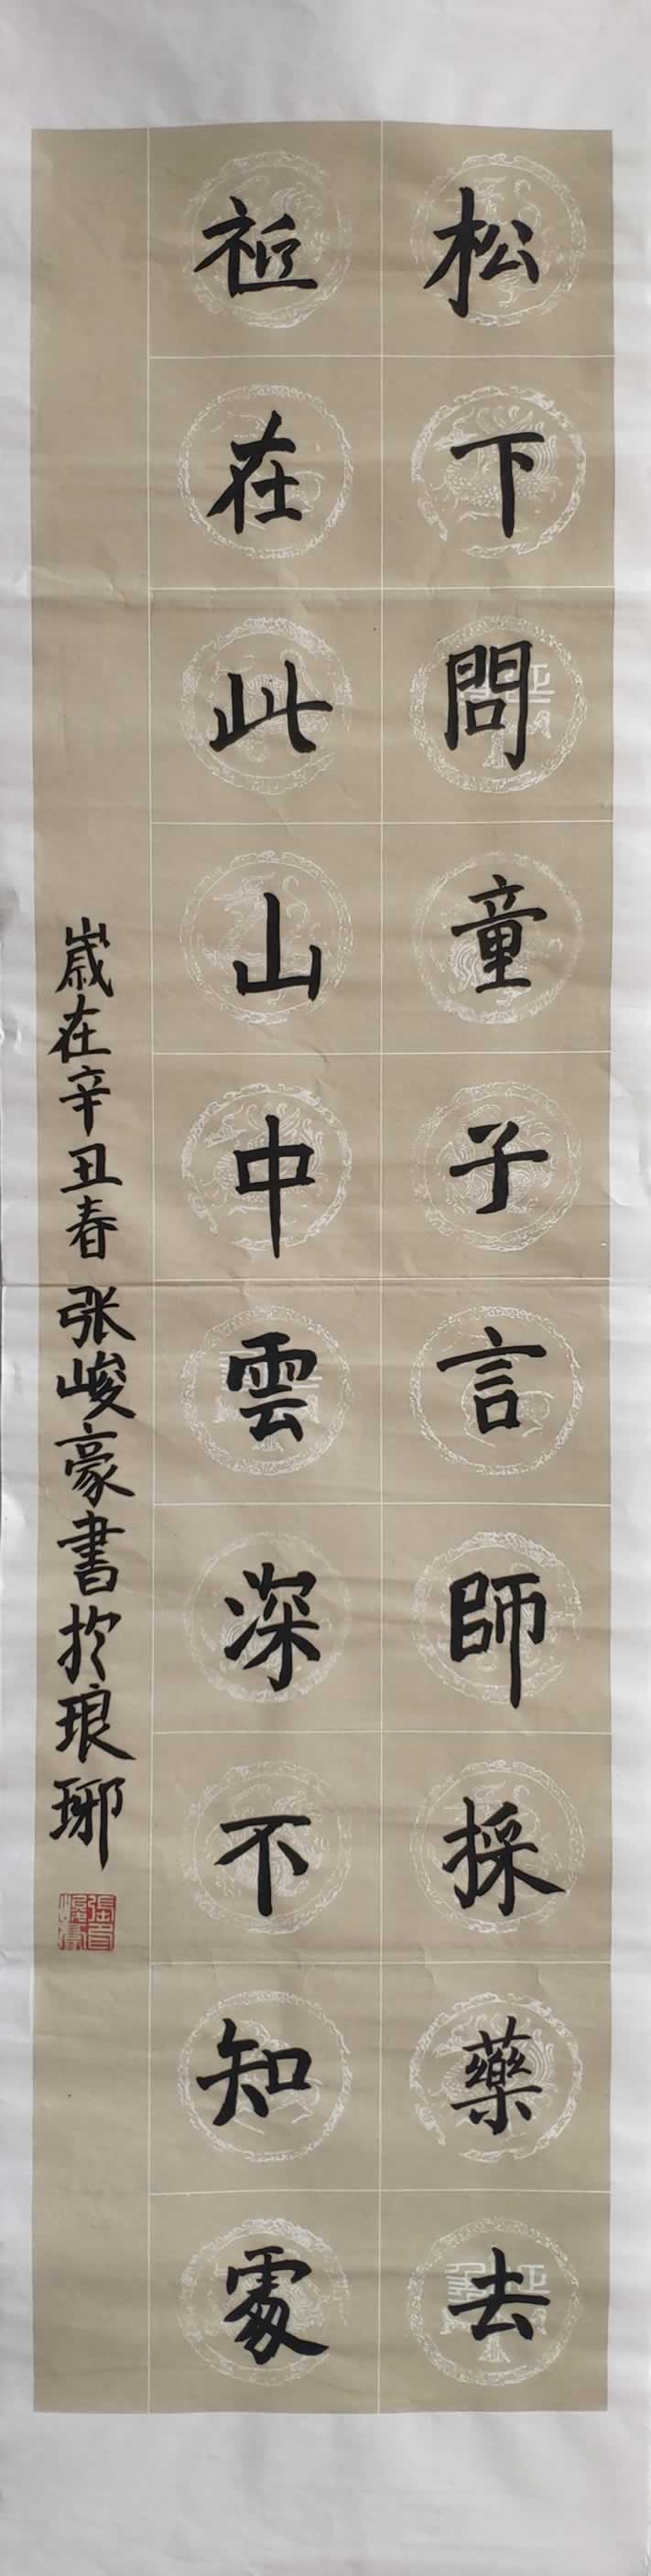 松下問童子言師採藥去
祗在此山中雲深不知處
歲在辛丑春 张峻豪書於琅琊